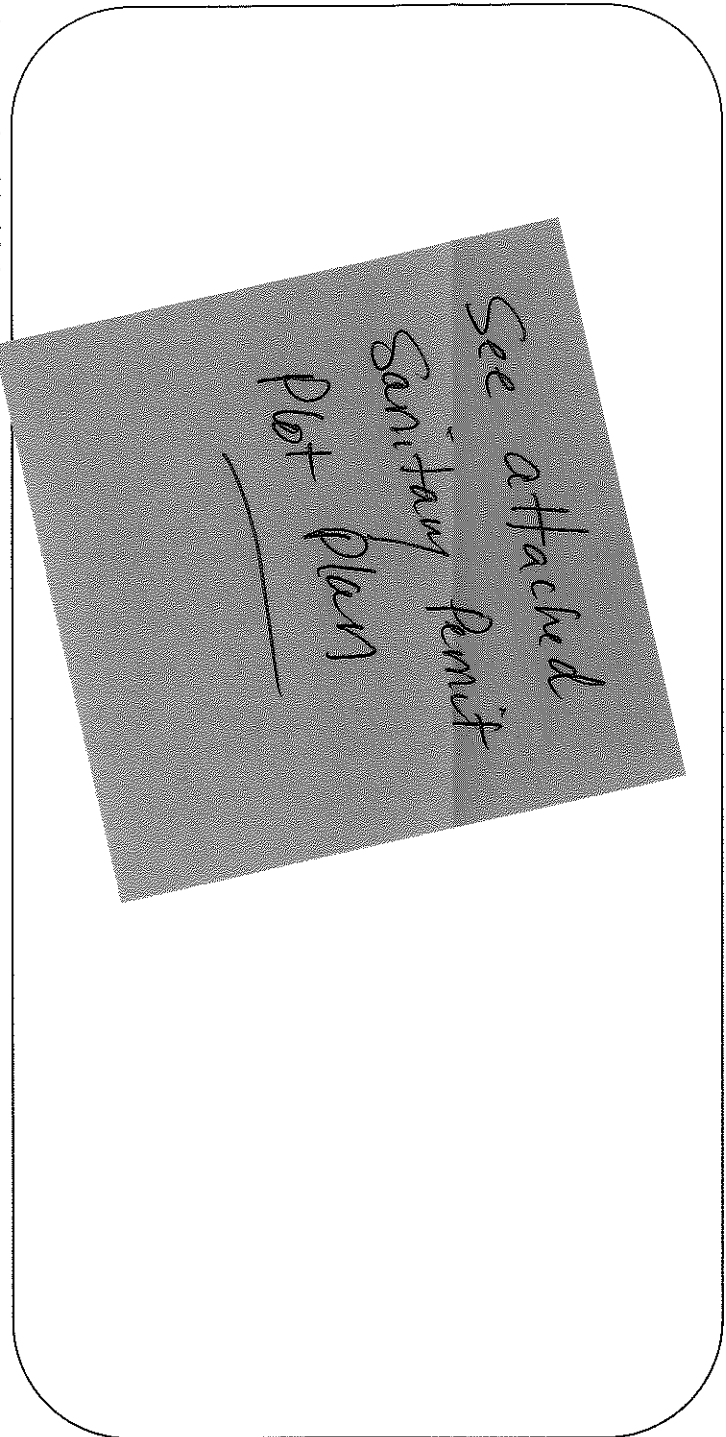 See attached
Sanitary Permit
Plot Plan